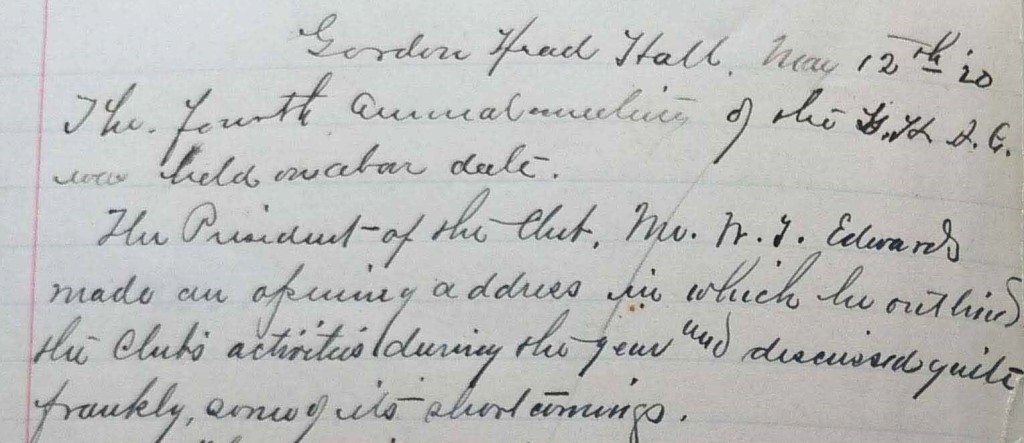 Gordon Head Hall, May 12th '20
The. fourth annual meeting of the G.H.
was held on above date.
The President of the Club, Mr. W. T. Edwards
made an opening address in which he outlined
the Club's activities during the year and discussed quite
frankly, some of its shortcomings.